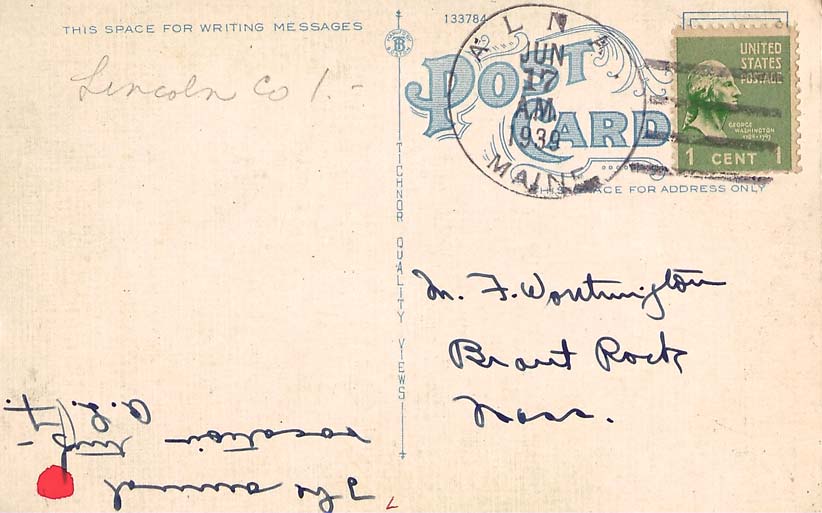 THIS SPACE FOR WRITING MESSAGES
Lincoln Co 1.-
133784
POST
CARD
ALNA
JUN
17
A.M.
1939
MAINE
UNITED
STATES
POSTAGE
GEORGE
WASHINGTON
1 CENT 1
THIS SPACE FOR ADDRESS ONLY
TICHNOR QUALITY VIEWS
M. F. Worthington
Brant Rock
Mass.
The annual
vacation trip -